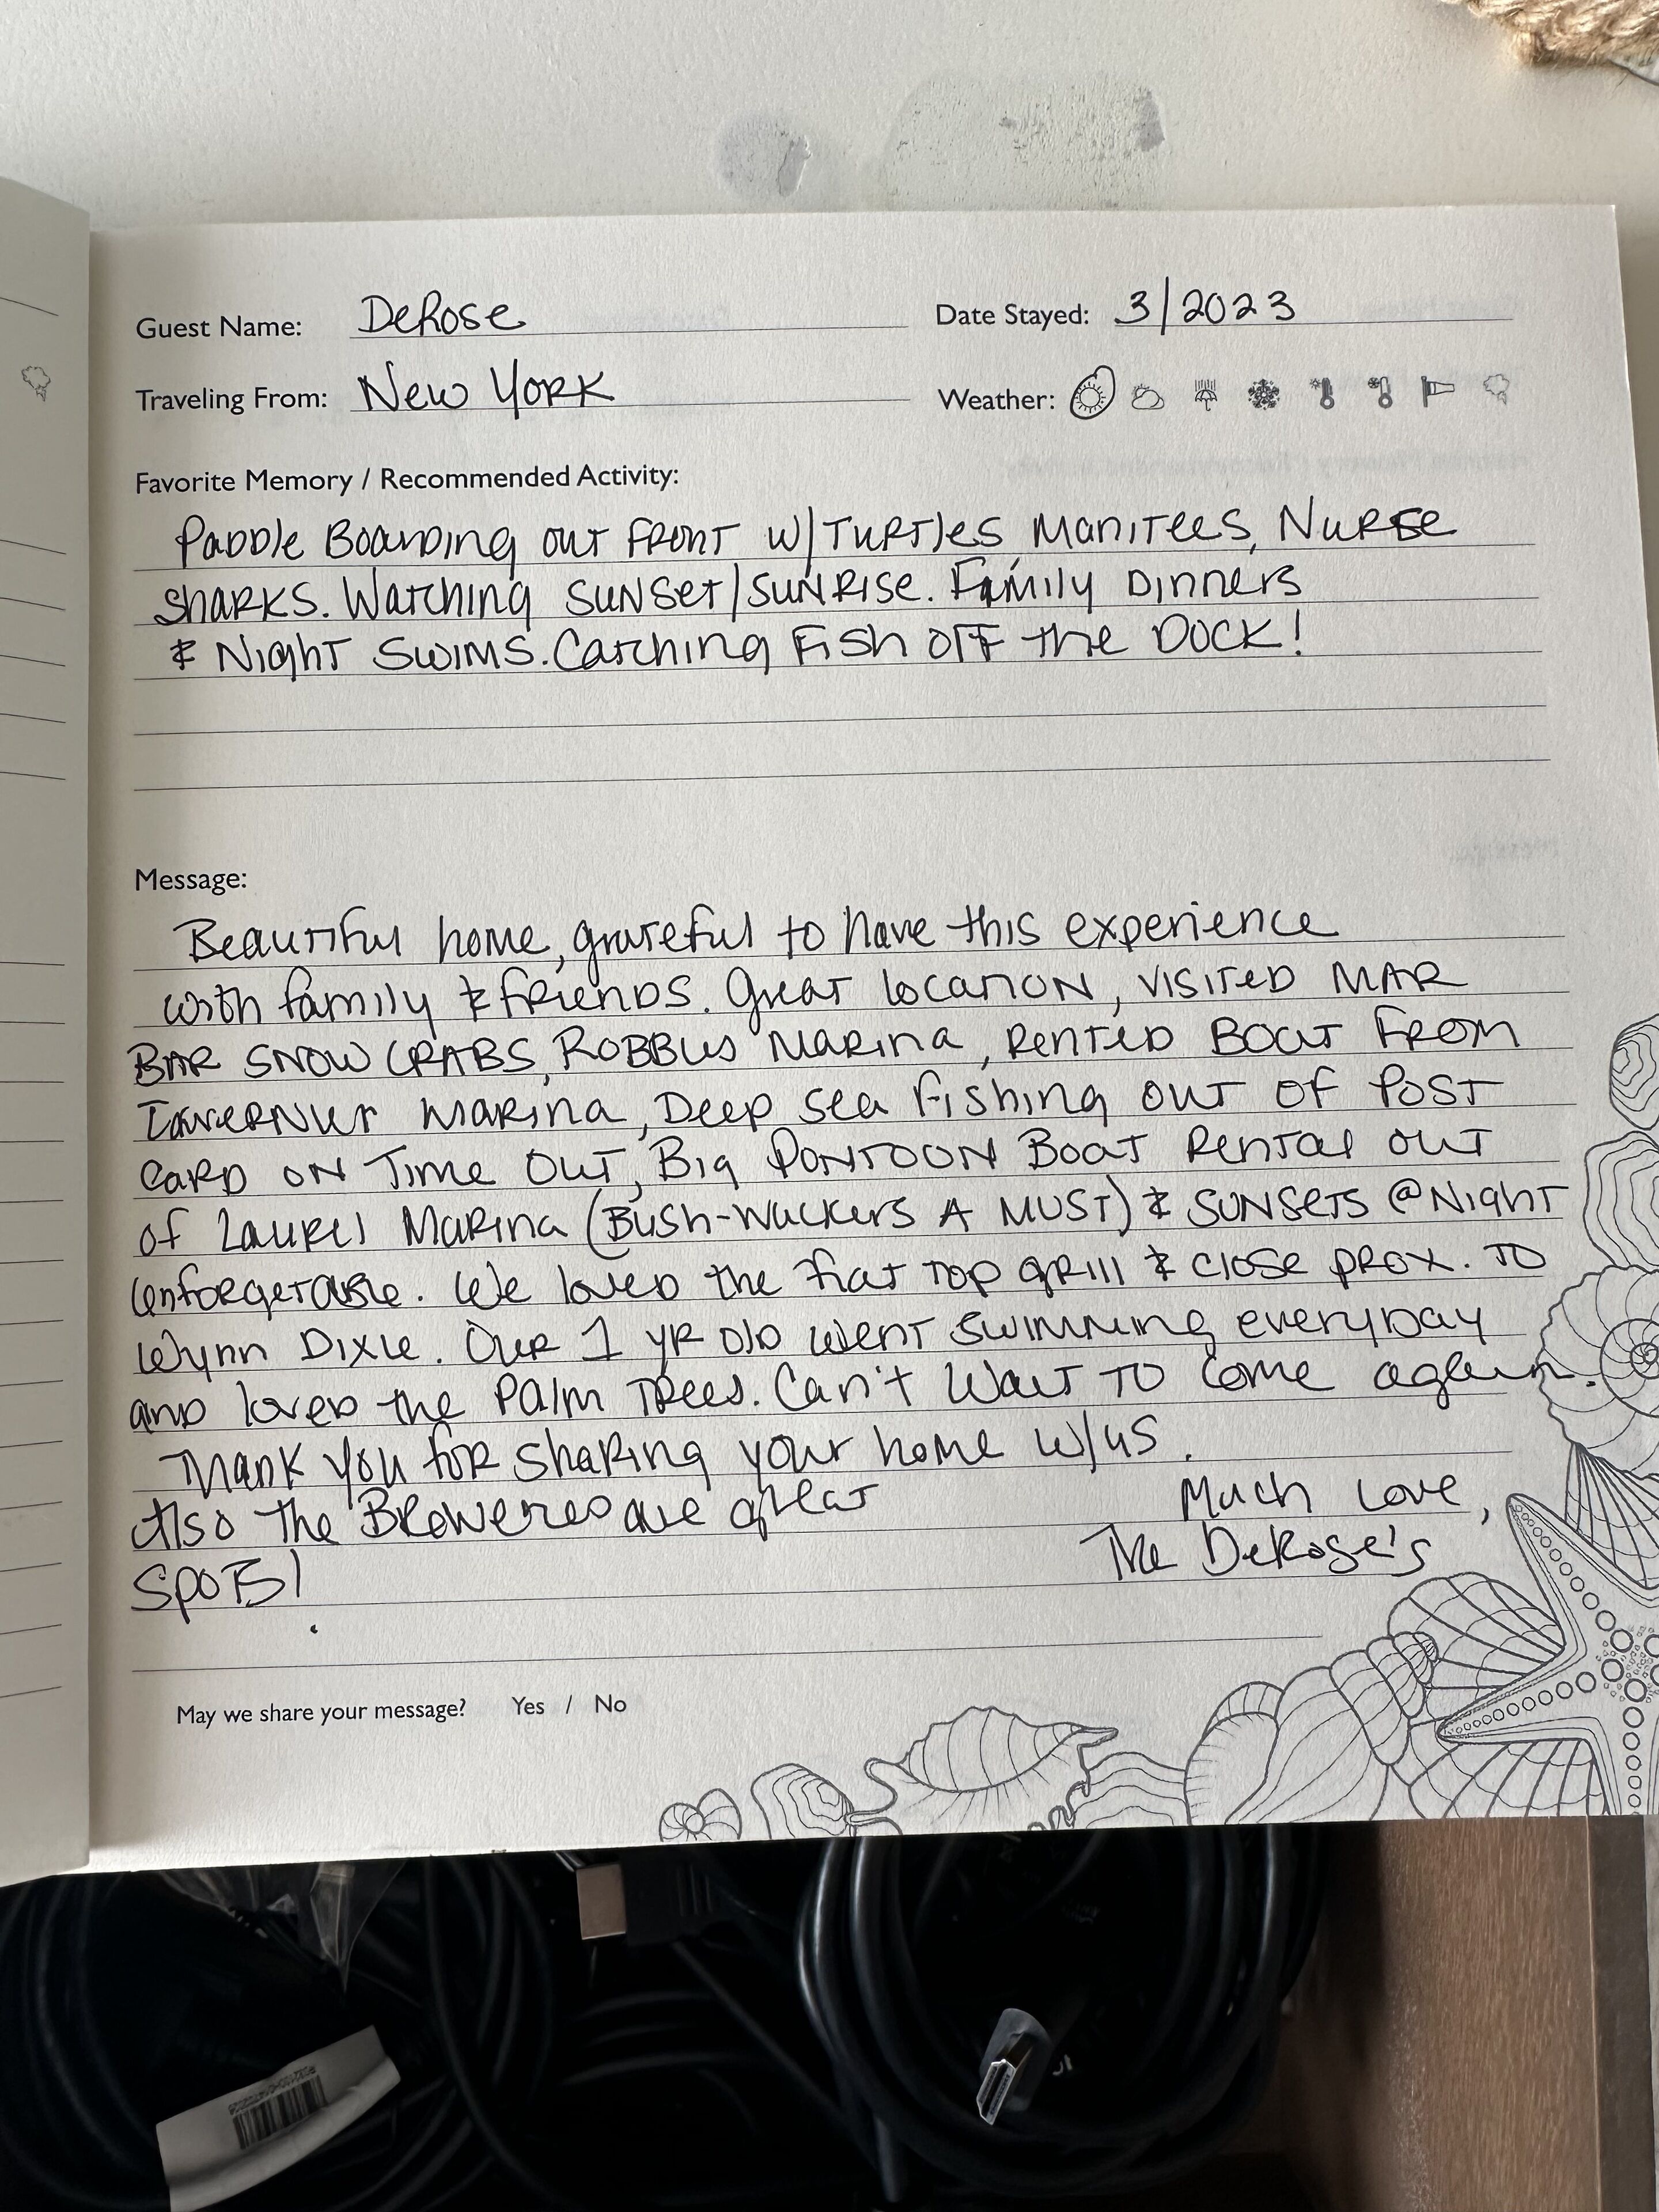 Guest Name: DeRose
Date Stayed: 3/2023
Traveling From: New York
Weather:
Favorite Memory / Recommended Activity:
Paddle Boarding out front w/ Turtles, Manitees, Nurse
sharks. Watching sunset/sunrise. Family Dinners
& Night swims. Catching Fish off the Dock!
Message:
Beautiful home, grateful to have this experience
with family & friends. Great location, visited MAR
BAR SNOW CRABS, Robbies Marina, rented Boat from
Tavernier Marina, Deep sea fishing out of Post
Card on Time Out, Big Pontoon Boat Rental out
of Laurel Marina (Bush-Wackers A MUST) & sunsets @ Night
unforgetable. We loved the flat top grill & close prox. to
Wynn Dixie. Our 1 yr old went swimming everyday
and loved the palm trees. Can't wait to come again.
Thank you for sharing your home w/us.
Also the Broweries are great
Spots!
Much Love,
The DeRose's
May we share your message? Yes / No